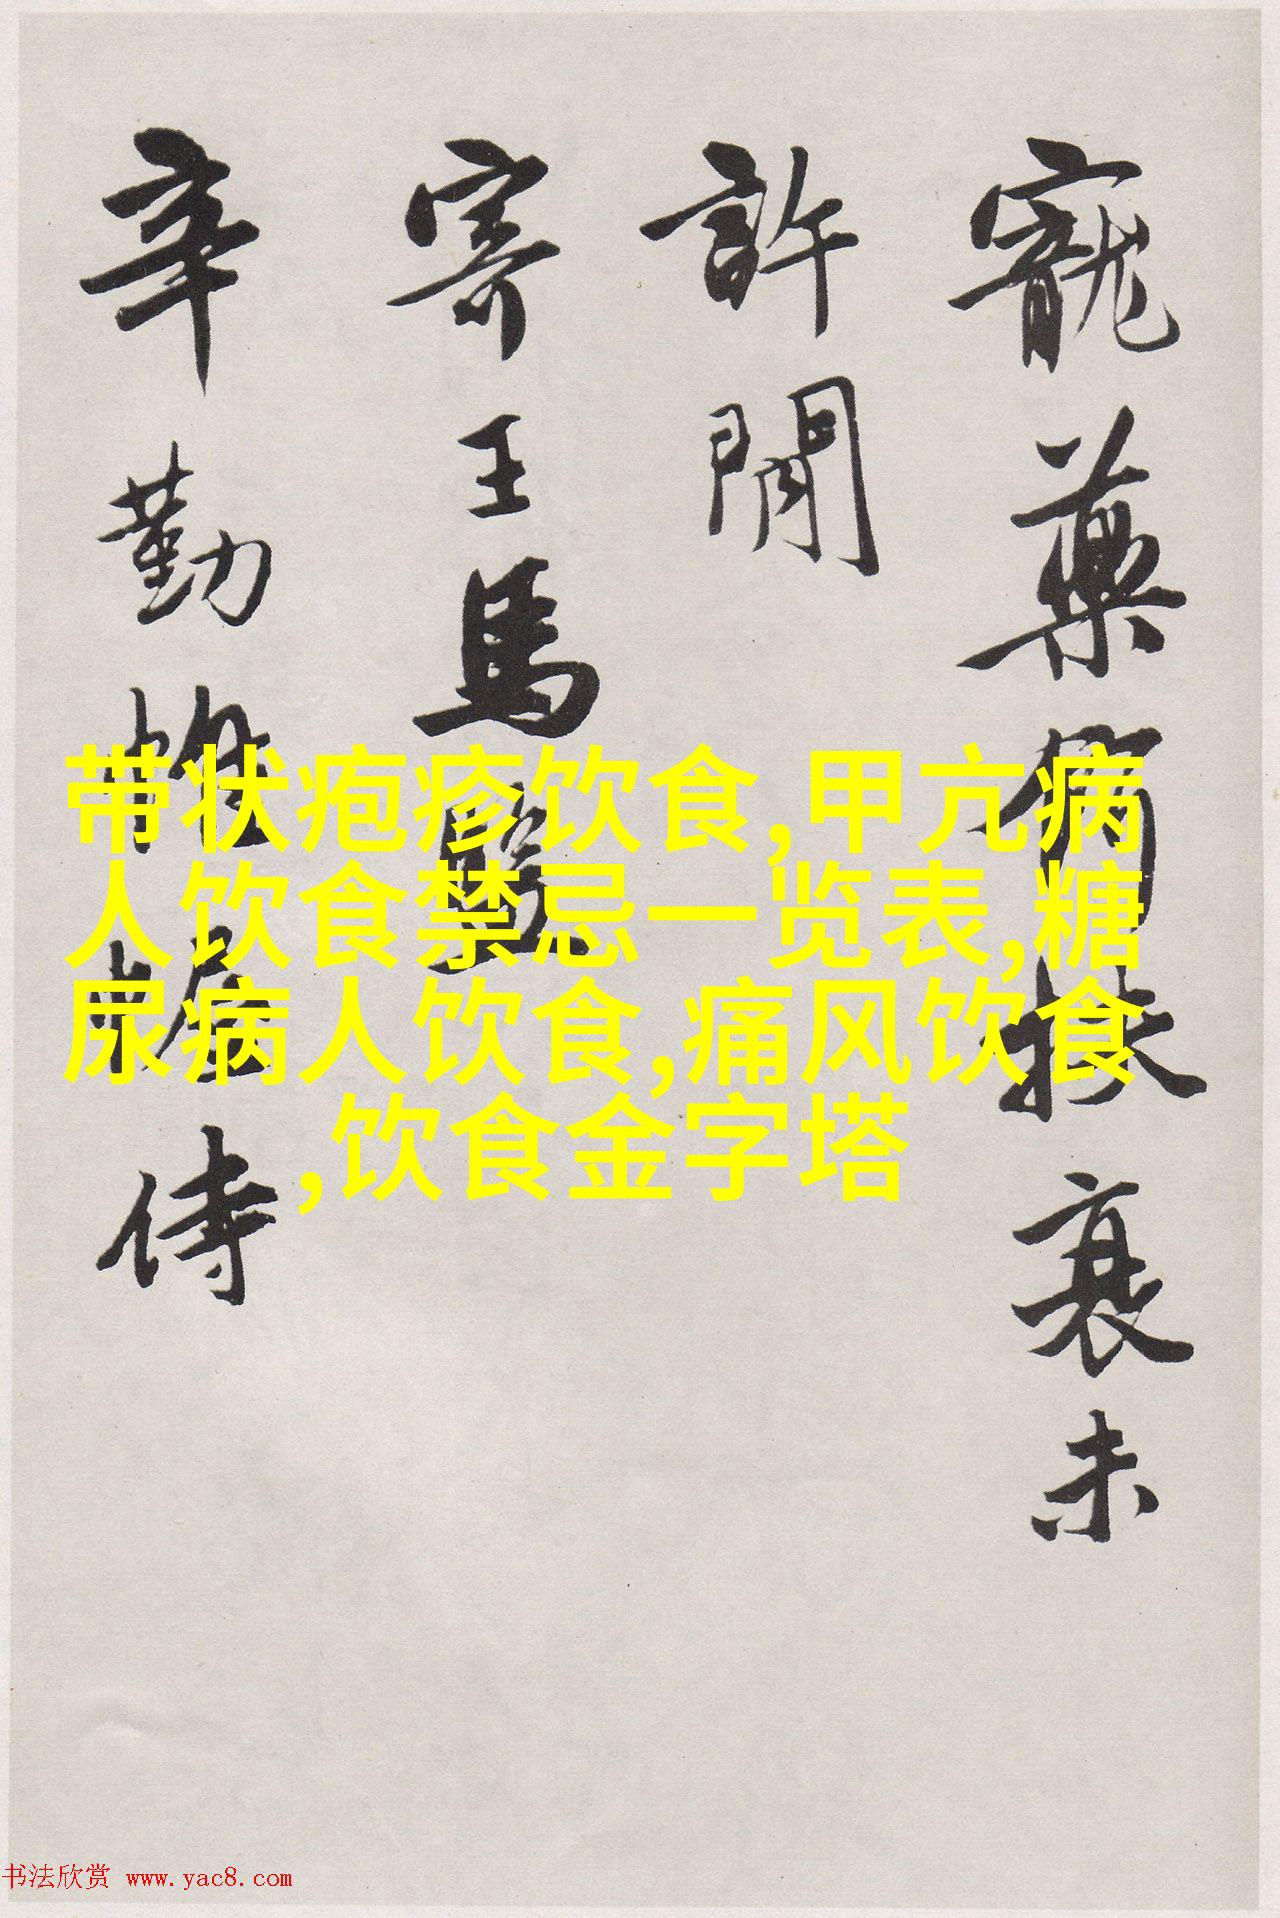 寵藥偏扶衰未
許閒
寄王馬醫
辛勤帷幄侍
带状疱疹饮食,甲亢病
人饮食禁忌一览表,糖
尿病人饮食,痛风饮食
,饮食金字塔
书法欣赏 www.yac8.com